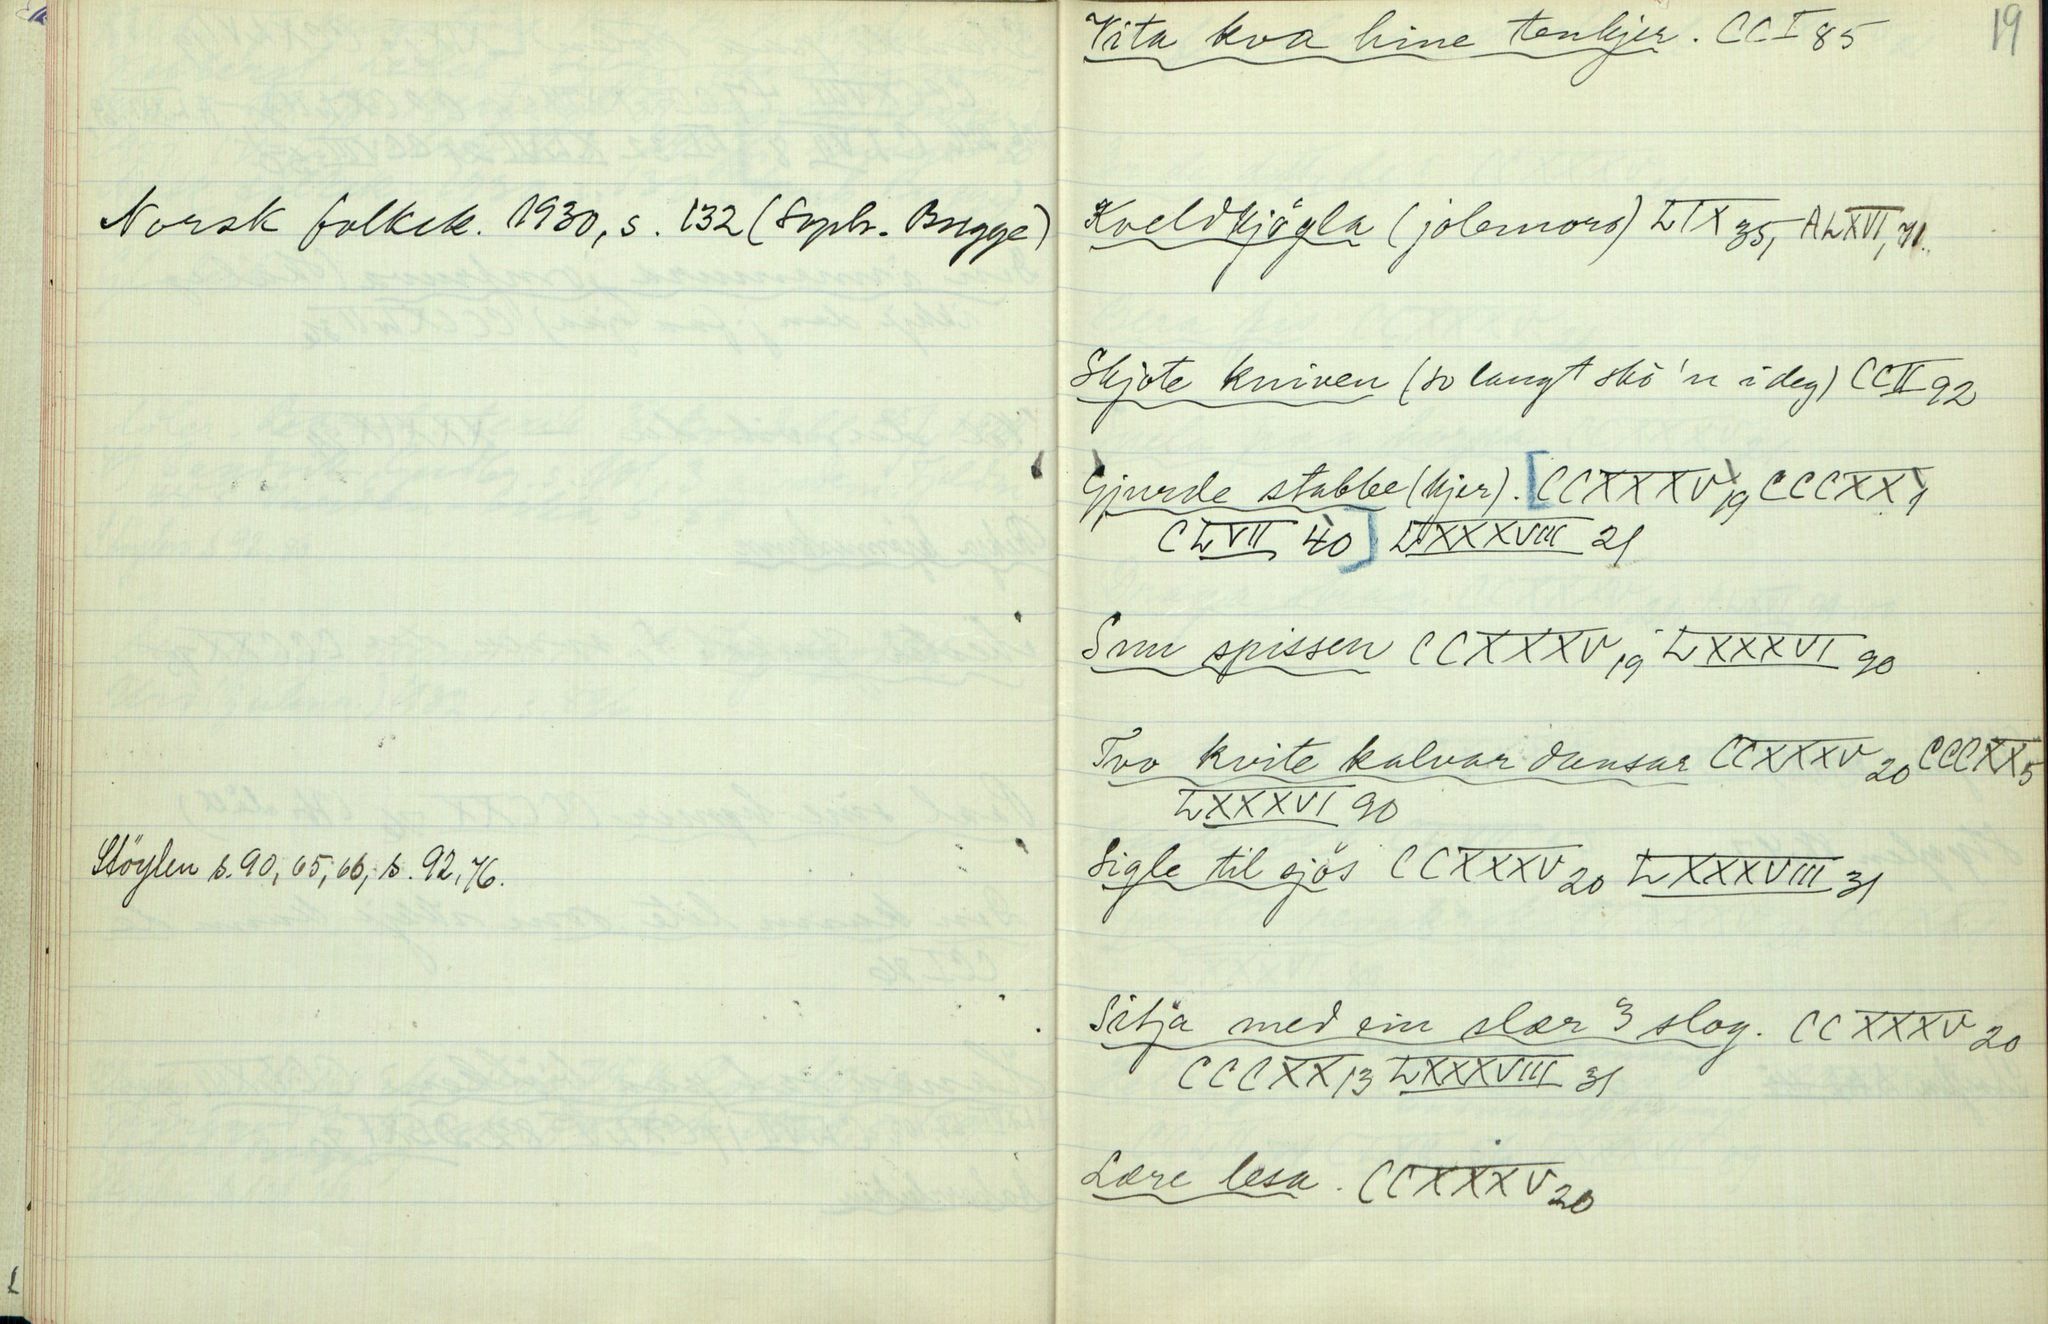 Norsk folkek. 1930, s. 132 (Soph. Bugge)
Støylen s. 90, 65, 66, s. 92, 76.
19
Vita kva hine tenkjer. CCI 85
Kveldkjögla (jolemoro) LIX 35, ALXVI, 71.
Skjote kniven (so langt sto 'n i deg) CCII 92
Gjurde stabbe (kjer). [CCXXXV 19 CCCXX 1
CLVII 40] LXXXVIII 21
Snu spissen CCXXXV 19 LXXXVI 90
Tvo kvite kalvar dansar CCXXXV 20 CCCXX 5
LXXXVI 90
Sigle til sjøs CCXXXV 20 LXXXVIII 31
Sitja med ein slær 3 slag. CCXXXV 20
CCCXX 13 LXXXVIII 31
Lære lesa. CCXXXV 20